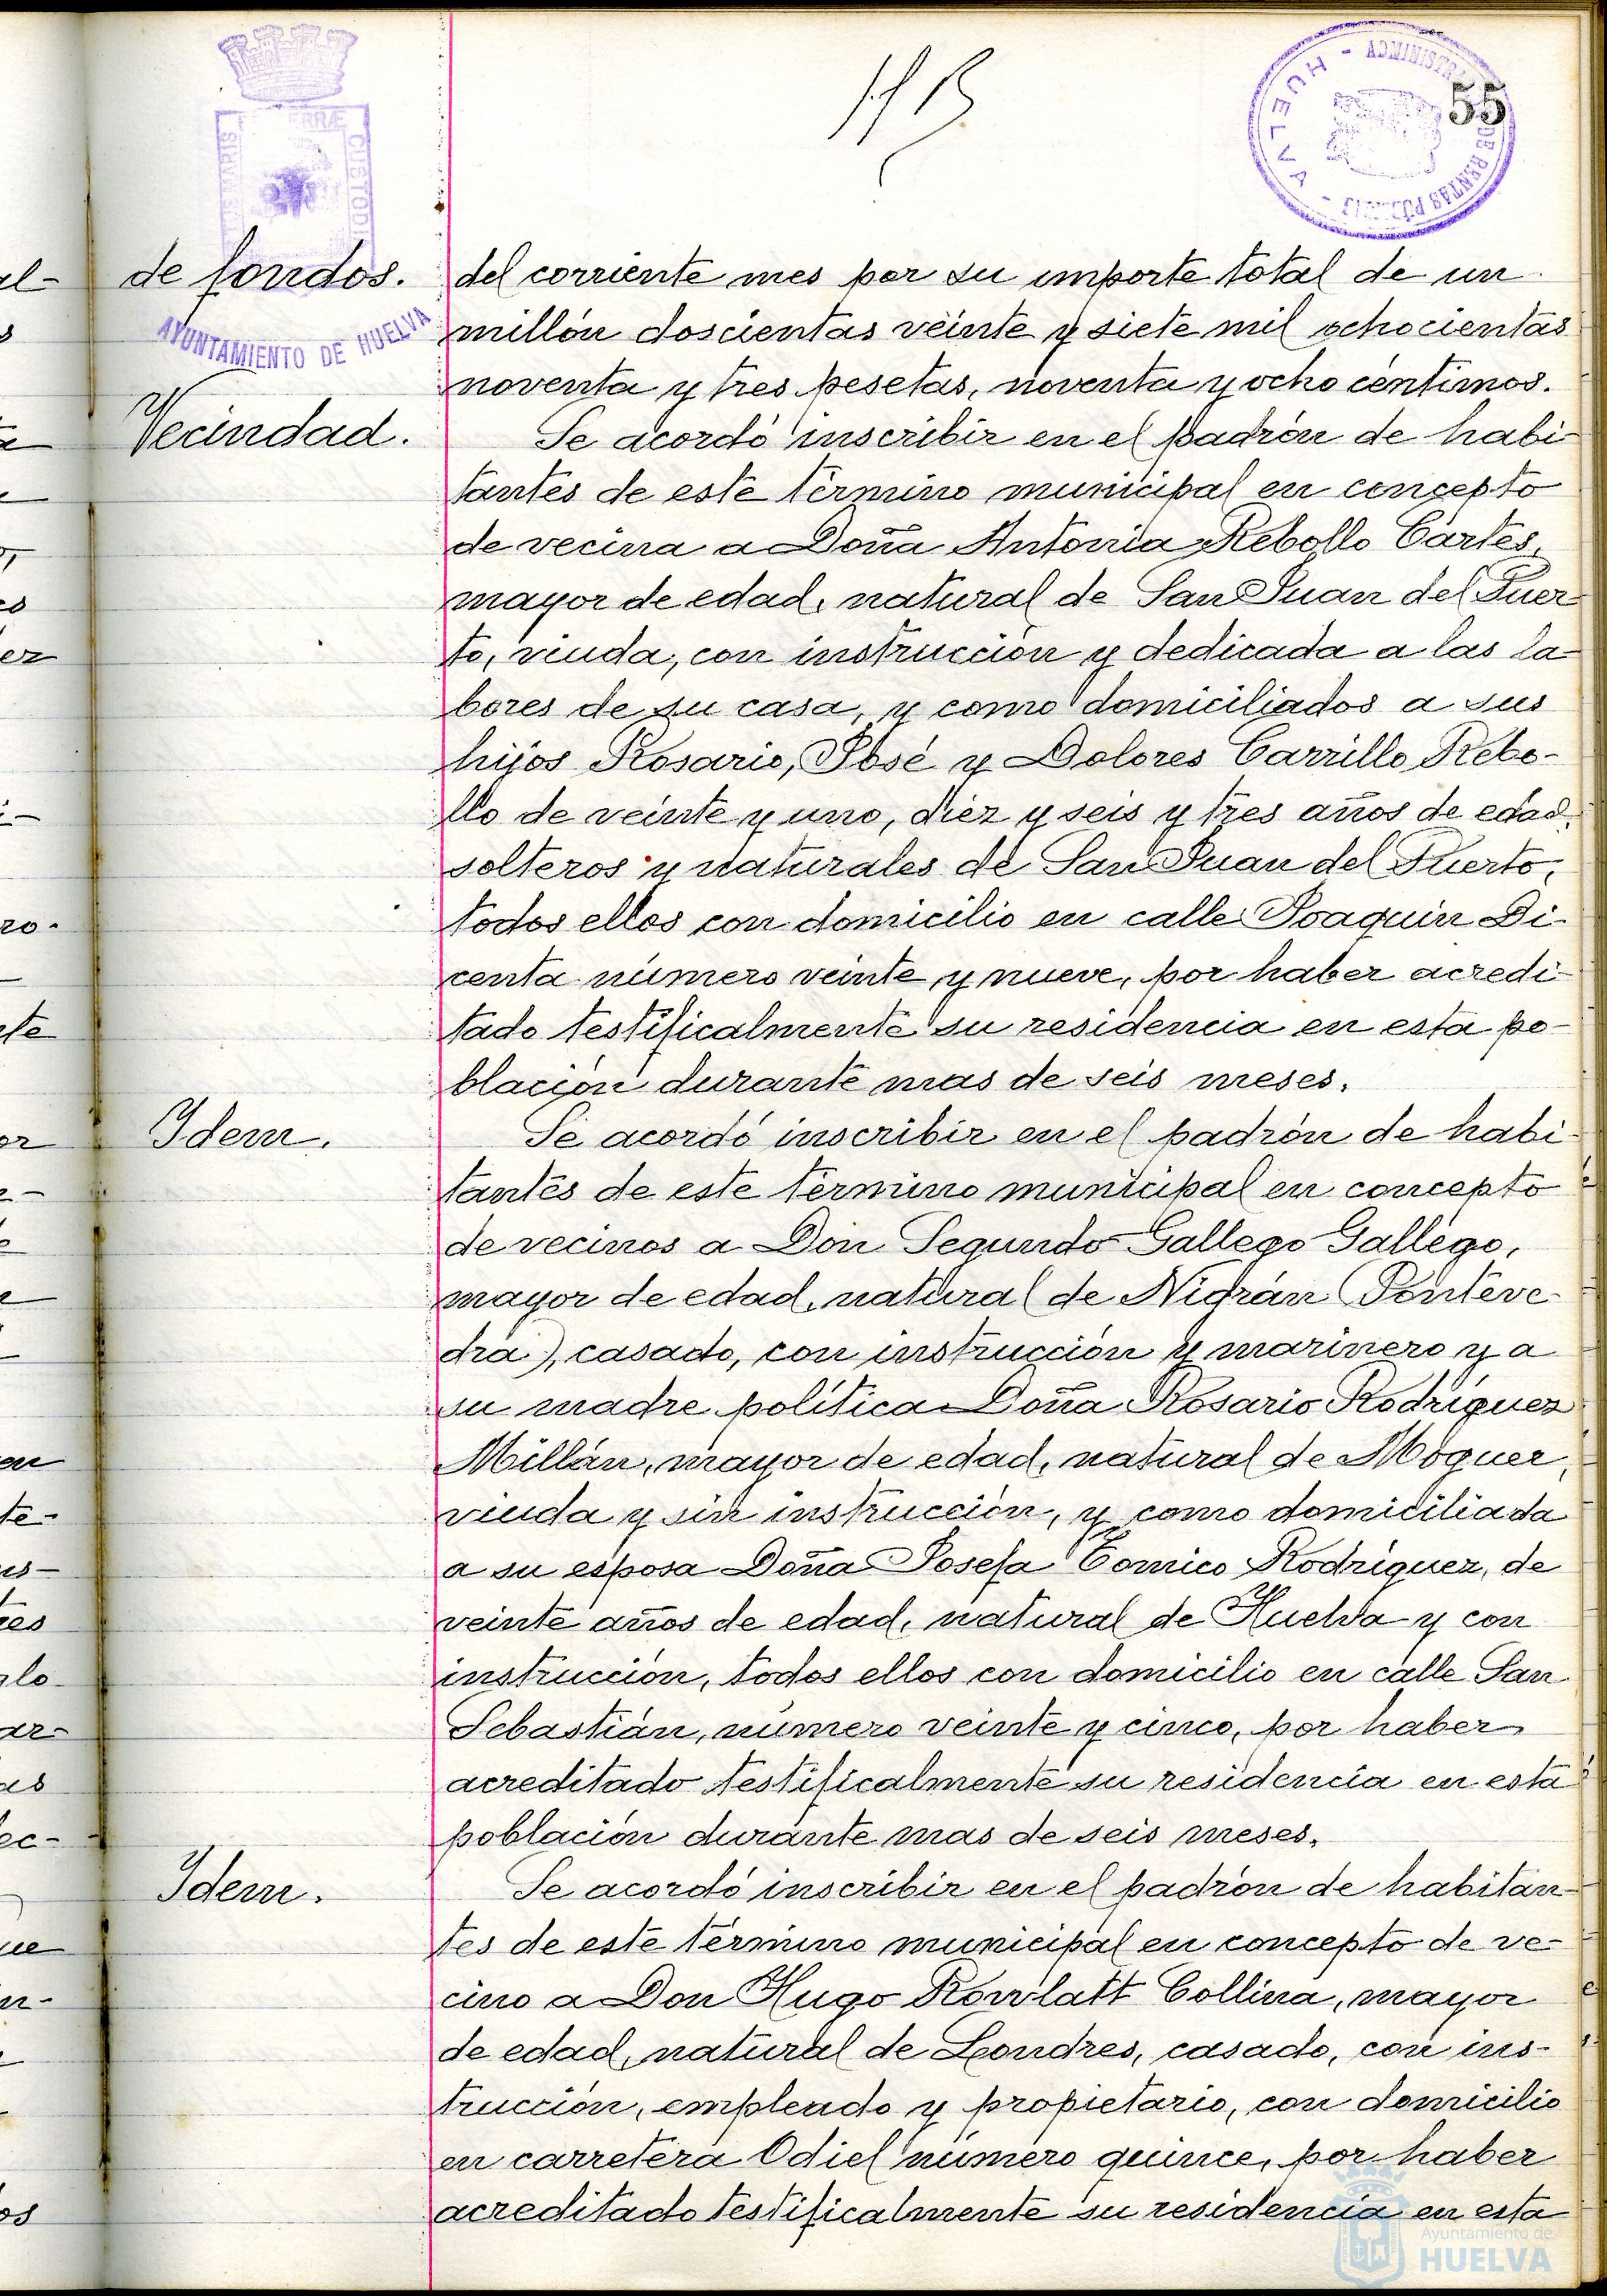 55
de fondos.
AYUNTAMIENTO DE HUELVA
del corriente mes por su importe total de un
millón doscientas veinte y siete mil ochocientas
noventa y tres pesetas, noventa y ocho centimos.
Vecindad.
Se acordó inscribir en el padrón de habi-
tantes de este término municipal en concepto
de vecina a Doña Antonia Rebollo Cartes,
mayor de edad, natural de San Juan del Puer-
to, viuda, con instrucción y dedicada a las la-
bores de su casa, y como domiciliados a sus
hijos Rosario, José y Dolores Carrillo Rebo-
llo de veinte y uno, diez y seis y tres años de edad,
solteros y naturales de San Juan del Puerto,
todos ellos con domicilio en calle Joaquin Di-
centa número veinte y nueve, por haber acredi-
tado testificalmente su residencia en esta po-
blación durante mas de seis meses.
Idem.
Se acordó inscribir en el padrón de habi-
tantes de este término municipal en concepto
de vecinos a Don Segundo Gallego Gallego,
mayor de edad, natural de Nigrán (Ponteve-
dra), casado, con instrucción y marinero y a
su madre política Doña Rosario Rodríguez
Millán, mayor de edad, natural de Moguer,
viuda y sin instrucción, y como domiciliada
a su esposa Doña Josefa Comico Rodríguez, de
veinte años de edad, natural de Huelva y con
instrucción, todos ellos con domicilio en calle San
Sebastián, número veinte y cinco, por haber
acreditado testificalmente su residencia en esta
población durante mas de seis meses.
Idem.
Se acordó inscribir en el padrón de habitan-
tes de este término municipal en concepto de ve-
cino a Don Hugo Rowlatt Collina, mayor
de edad, natural de Londres, casado, con ins-
trucción, empleado y propietario, con domicilio
en carretera Odiel número quince, por haber
acreditado testificalmente su residencia en esta
Ayuntamiento de
HUELVA